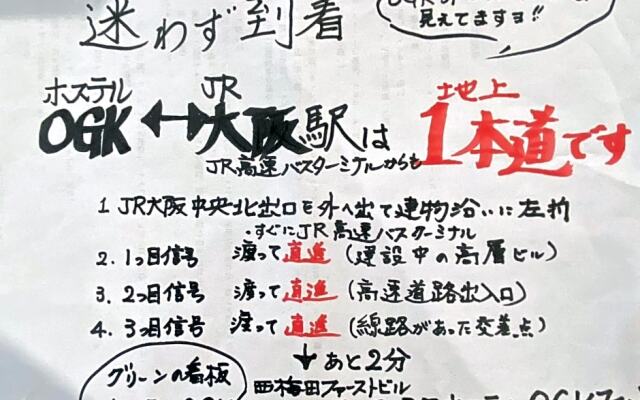 迷わず到着
見えてますヨ!!
ホステル JR 地上
OGK↔大阪駅は1本道です
JR高速バスターミナルからも
1 JR大阪中央北出口を外へ出て建物沿いに左折
・すぐにJR高速バスターミナル
2. 1つ目信号 渡って直進(建設中の高層ビル)
3. 2つ目信号 渡って直進(高速道路出入口)
4. 3つ目信号 渡って直進(線路があった交差点)
↓あと2分
グリーンの看板
西梅田ファーストビル
OGK